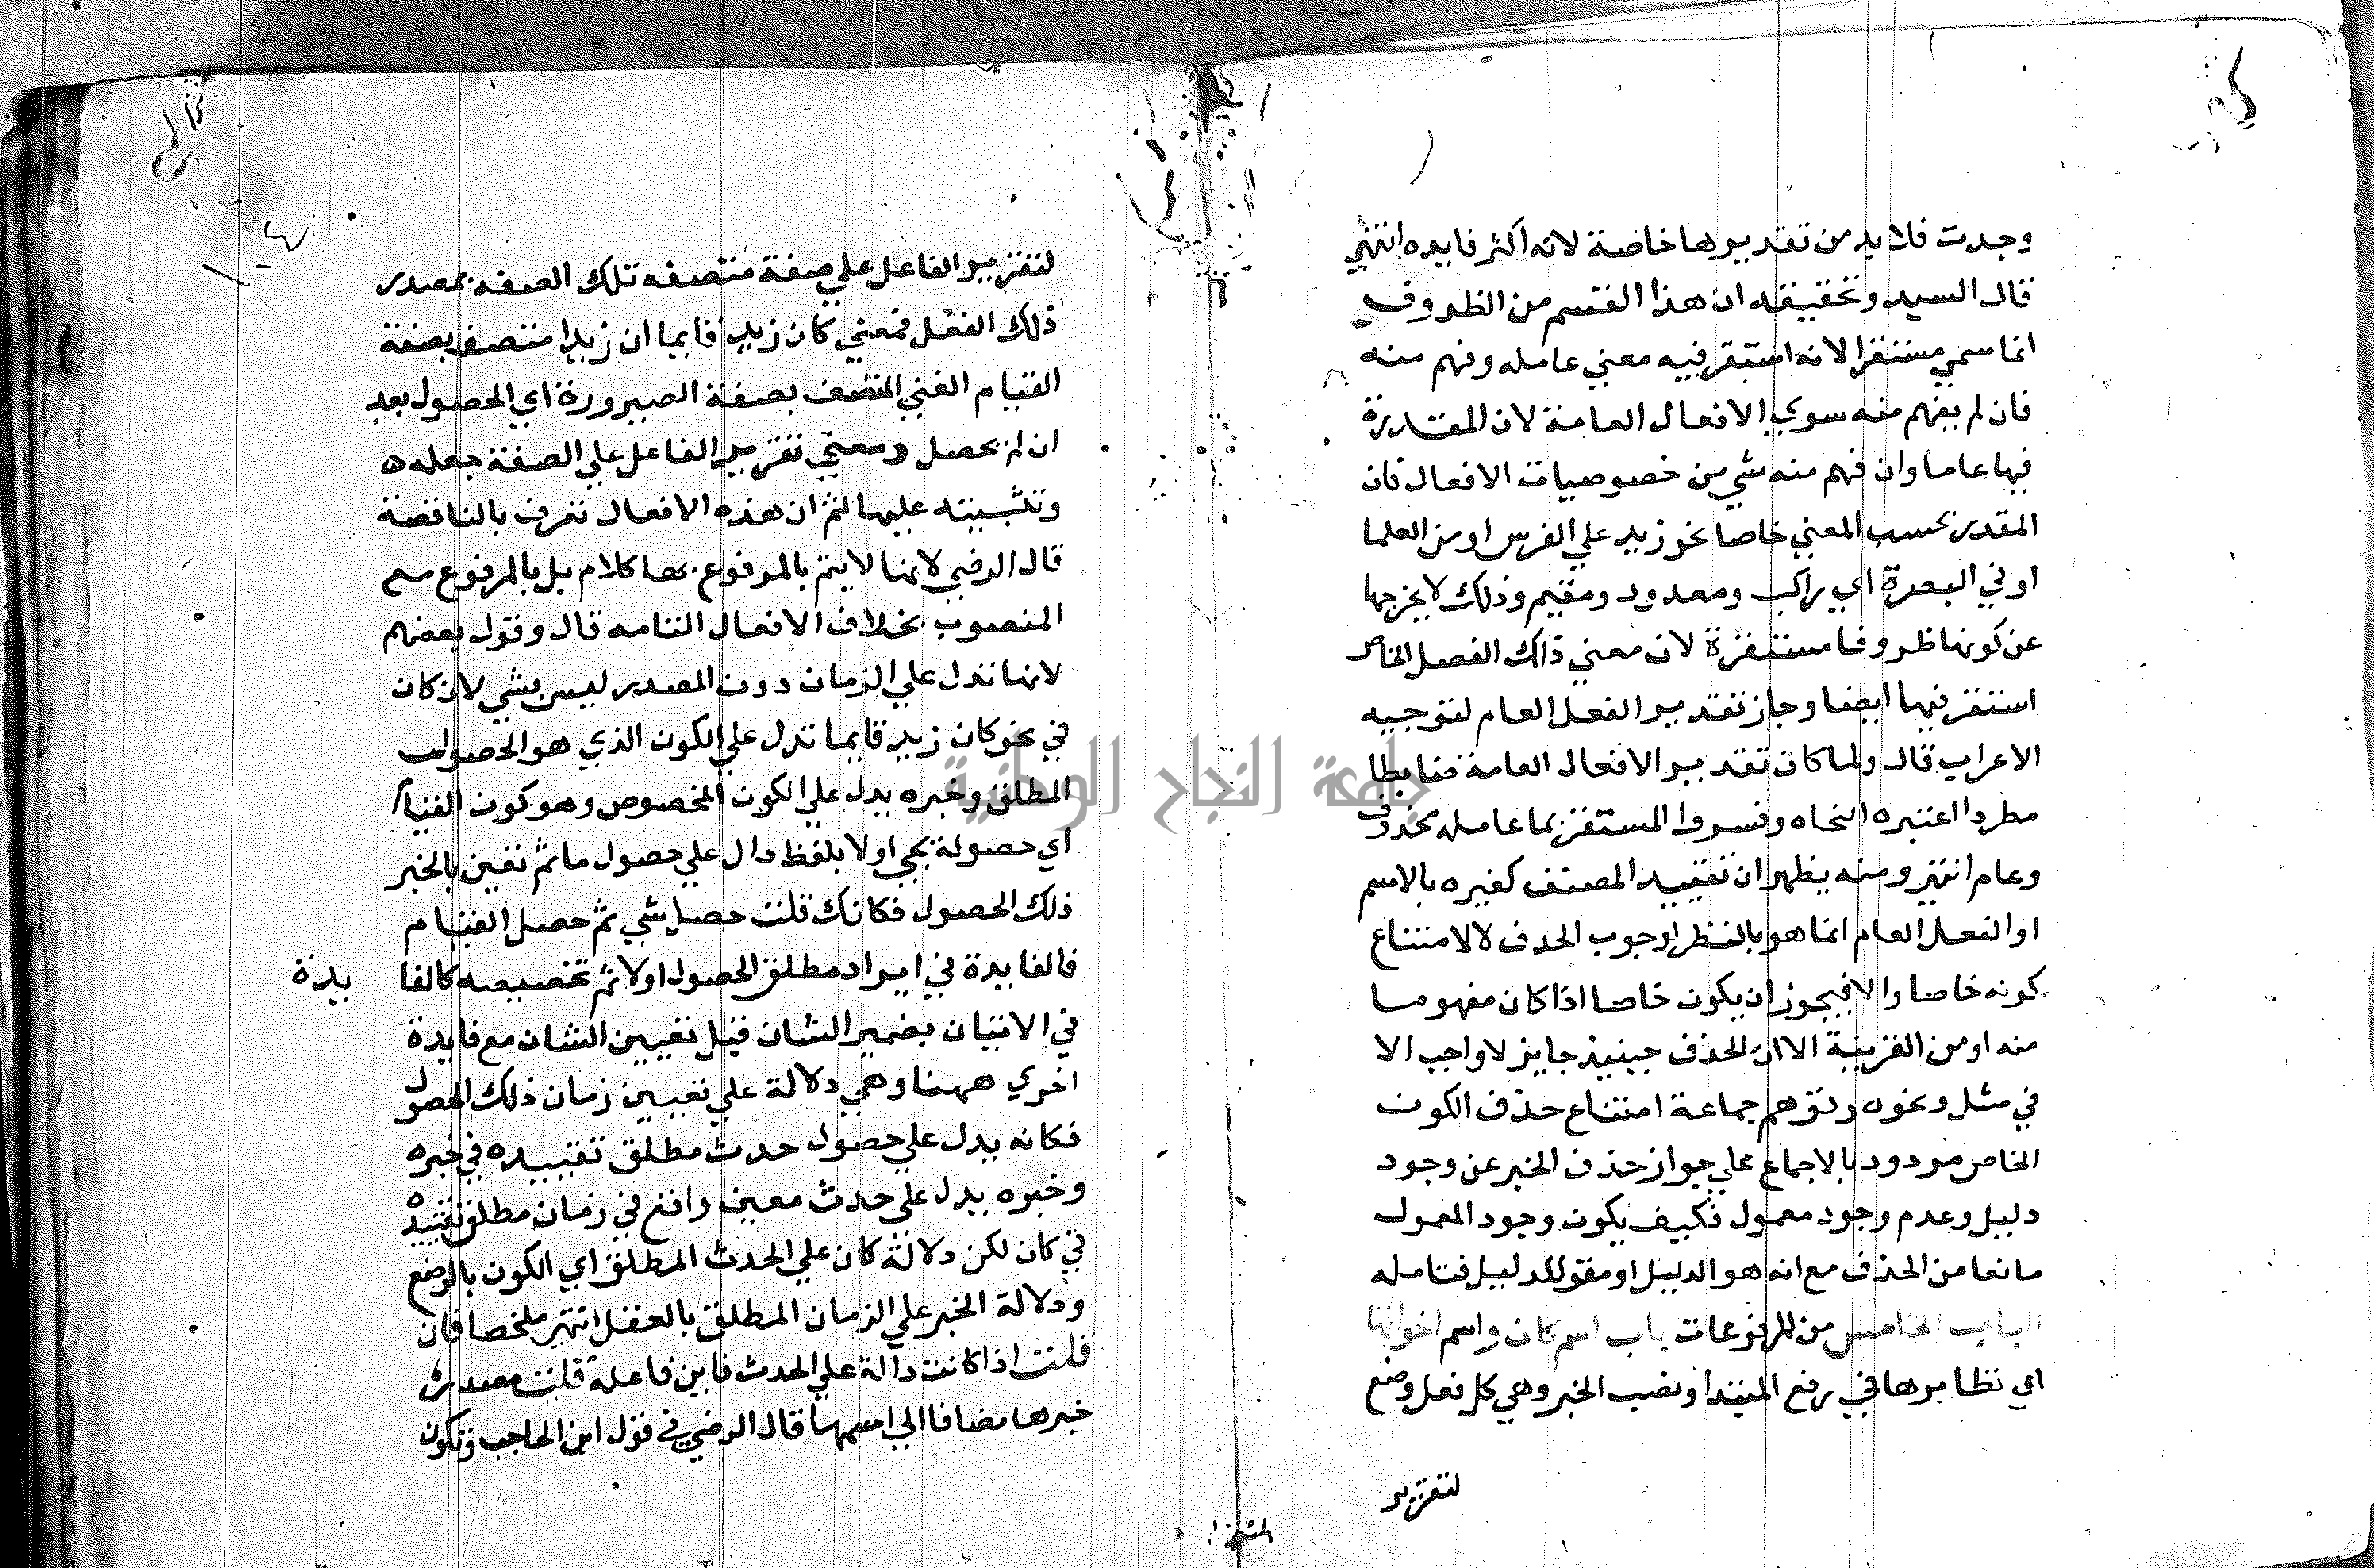 وجدت فلا بد من تقديرها خاصة لانه اكثر فايده انتهي
قال السيد وتحقيقه ان هذا القسم من الظروف
انما سمي مستقرا لانه استقر فيه معني عامله وفهم منه
فان لم يفهم منه سوي الافعال العامة لان المقدرة
فيها عاما وان فهم منه شي من خصوصيات الافعال فان
المقدر بحسب المعني خاصا نحو زيد علي الفرس او من العلما
او في البصرة اي راكب ومعدود ومقيم وذلك لا يخرجها
عن كونها ظروفا مستقرة لان معني ذالك الفعل الخاص
استقر فيها ايضا وجاز تقدير الفعل العام لتوجيه
الاعراب قال ولما كان تقدير الافعال العامة ضابطا
مطردا اعتبره النحاه وفسروا المستقر بما عامله محذوف
وعام انتهي ومنه يظهر ان تقييد المصنف كغيره بالاسم
او الفعل العام انما هو بالنظر لوجوب الحدف لا لامتناع
كونه خاصا والا فيجوز ان يكون خاصا اذا كان مفهوما
منه او من القرينة الا ان الحذف حينيذ جايز لا واجب الا
في مثل ونحوه وتوهم جماعة امتناع حذف الكون
الخاص مردود بالاجماع علي جواز حذف الخبر عن وجود
دليل وعدم وجود معمول فكيف يكون وجود المعمول
مانعا من الحذف مع انه هو الدليل او مقو للدليل فتامله
الباب الخامس من المرفوعات باب اسم كان واسم اخواتها
اي نظايرها في رفع المبتدا ونصب الخبر وهي كل فعل وضع
لتقرير
لتقرير الفاعل علي صفة متصفه تلك الصفه بمصدر
ذلك الفعل فمعني كان زيد قايما ان زيدا متصف بصفة
القيام الغني المتصف بصفة الصيرورة اي الحصول بعد
ان لم يحصل ومعني تقرير الفاعل علي الصفة جعله
وتثبيته عليها ثم ان هذه الافعال تعرف بالناقصة
قال الرضي لانها لا يتم بالمرفوع بها كلام بل بالمرفوع مع
المنصوب بخلاف الافعال التامه قال وقول بعضهم
لانها تدل علي الزمان دون المصدر ليس بشي لان كان
في نحو كان زيد قايما تدل علي الكون الذي هو الحصول
المطلق وخبره يدل علي الكون المخصوص وهو كون القيام
اي حصولة يجي اولا بلفظ دال علي حصول ما ثم تعين بالخبر
ذلك الحصول فكانك قلت حصل شي ثم حصل القيام
فالفايدة في ايراد مطلق الحصول اولا ثم تخصيصه كالفا يدة
في الاتيان بضمير الشان قبل تعيين الشان مع فايدة
اخري ههنا وهي دلالة علي تعيين زمان ذلك الحصول
فكانه يدل علي حصول حدث مطلق تقييده في خبره
وخبره يدل علي حدث معين واقع في زمان مطلق تقييده
في كان لكن دلالة كان علي الحدث المطلق اي الكون بالوضع
ودلالة الخبر علي الزمان المطلق بالعقل انتهي ملخصا فان
قلت اذا كانت دالة علي الحدث فاين فاعله قلت مصدر
خبرها مضافا الي اسمها قال الرضي في قول ابن الحاجب وتكون
جامعة النجاح الوطنية